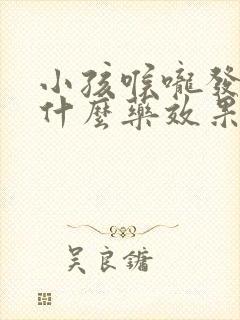 小孩喉嚨發
什麼藥效果
吴良镛